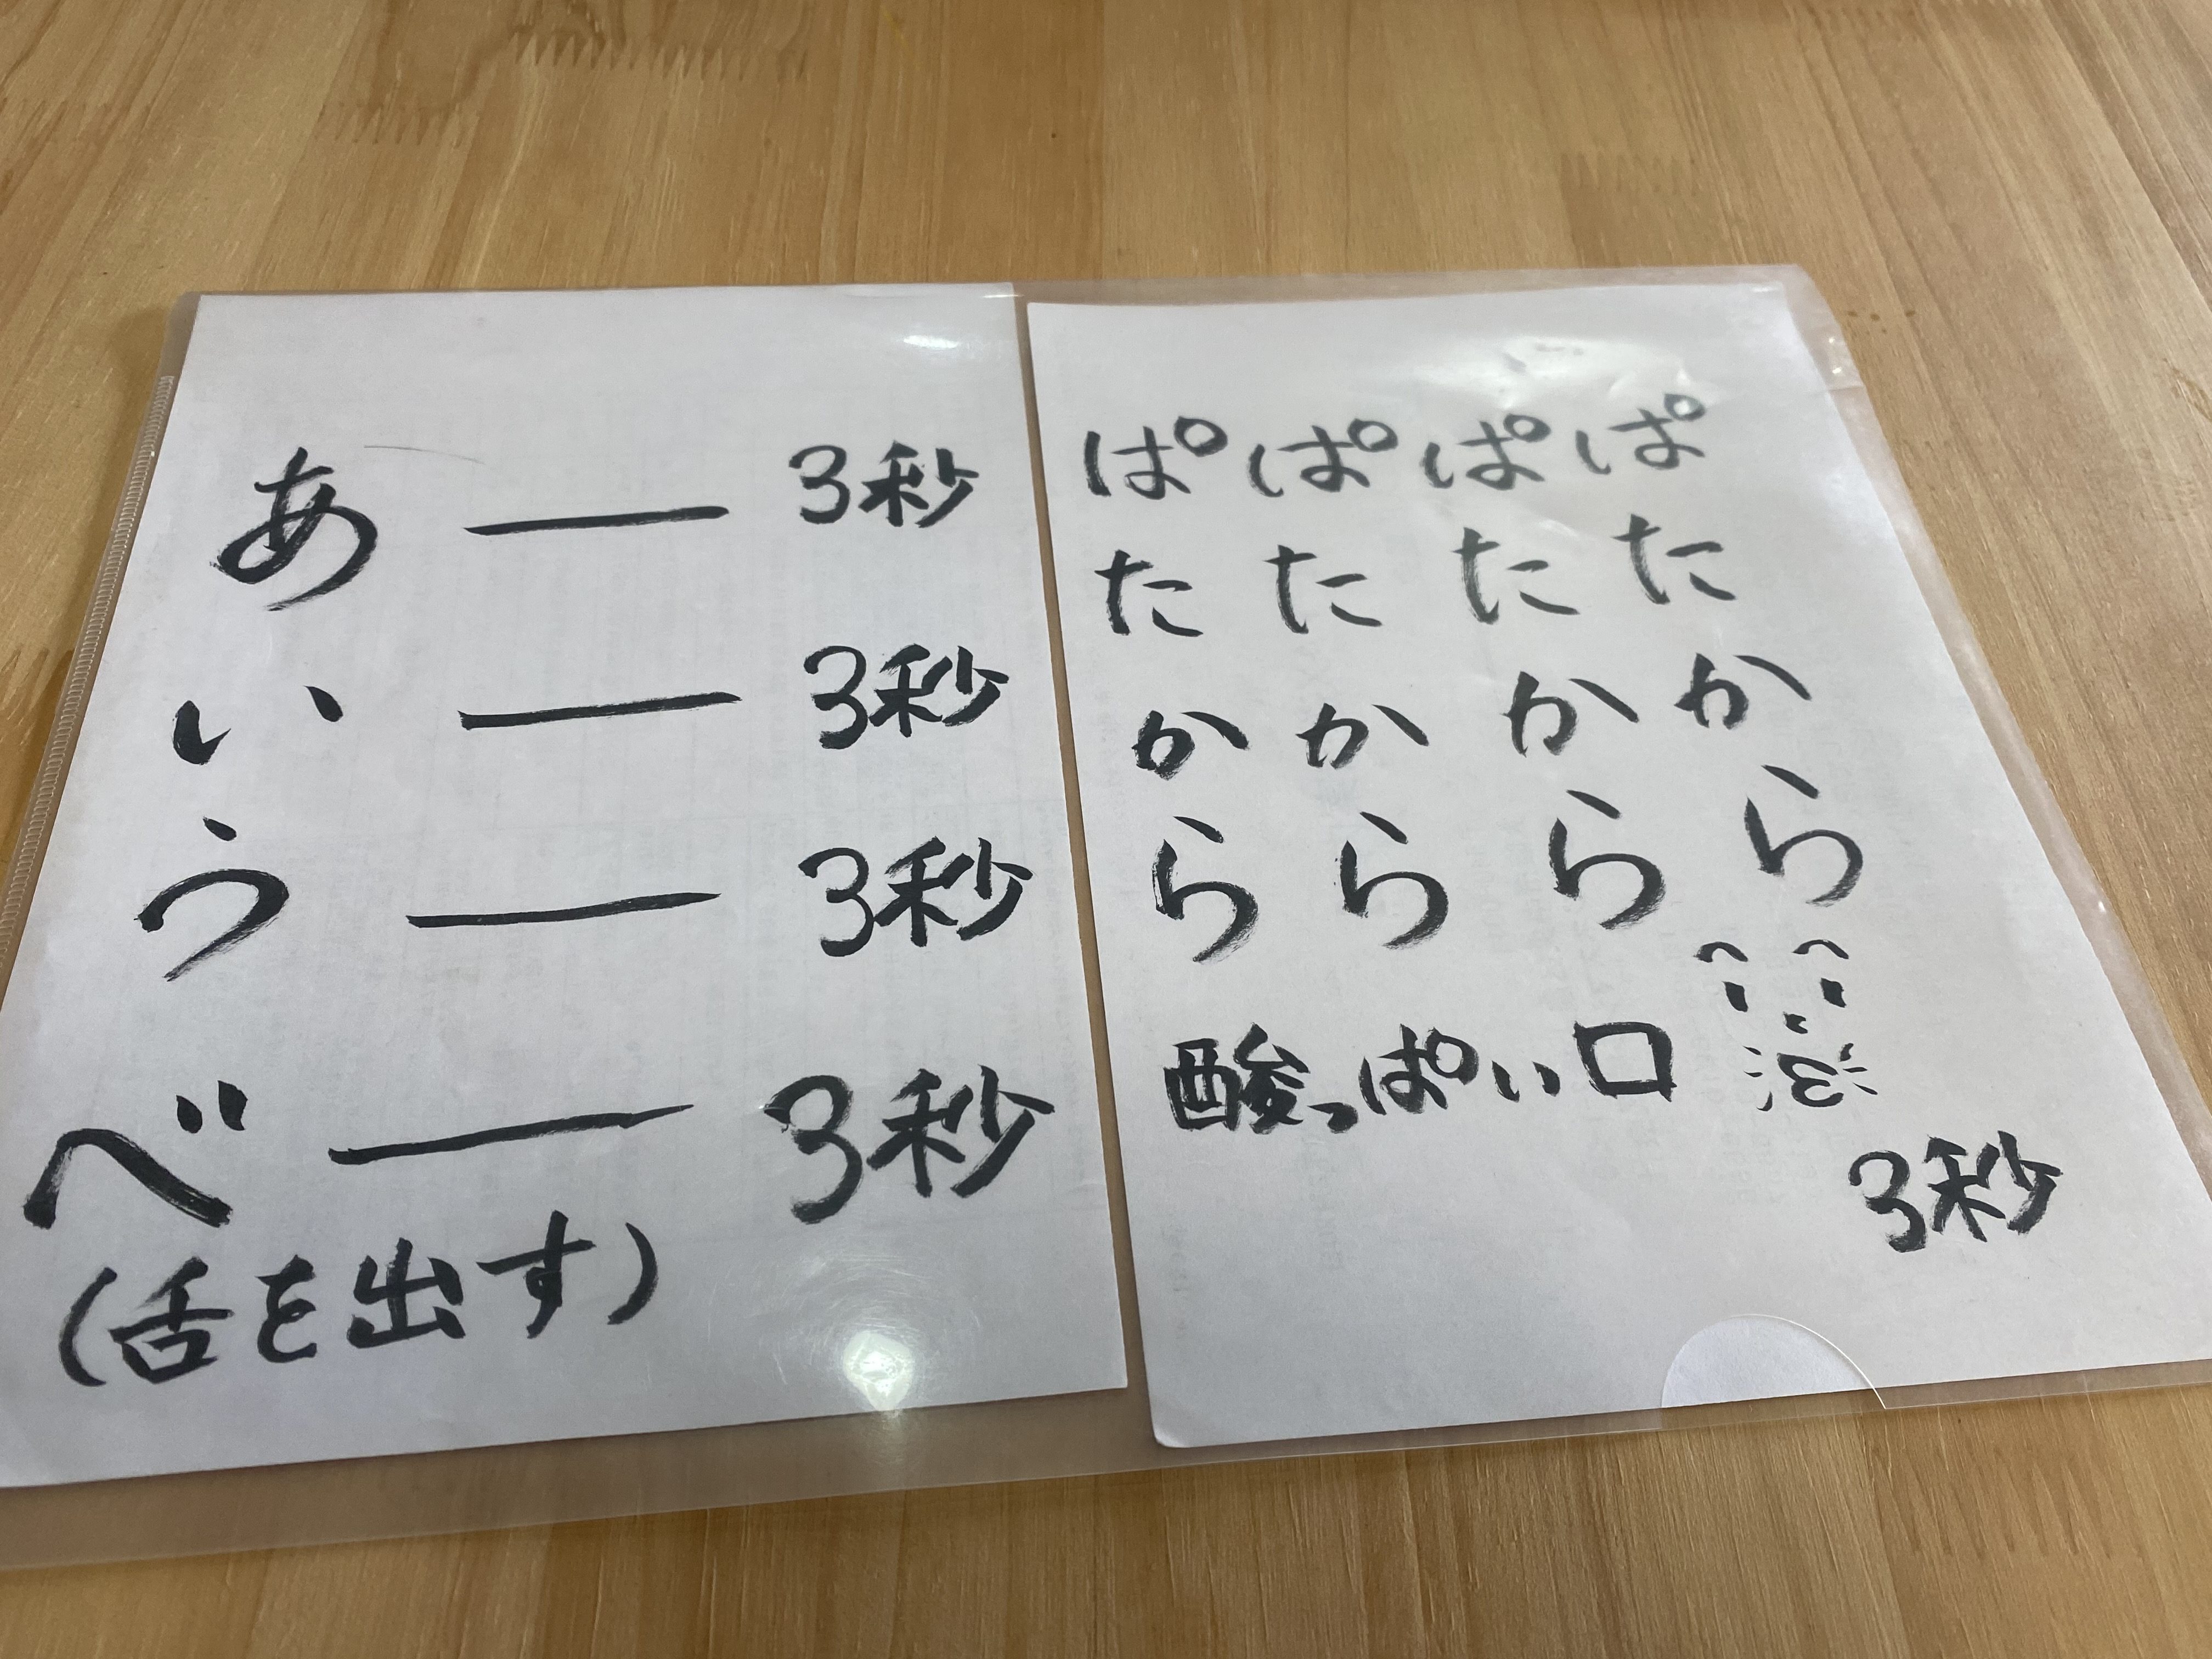 あ ― 3秒
い ― 3秒
う ― 3秒
べ ― 3秒
(舌を出す)
ぱ ぱ ぱ ぱ
た た た た
か か か か
ら ら ら ら
酸っぱい口
3秒